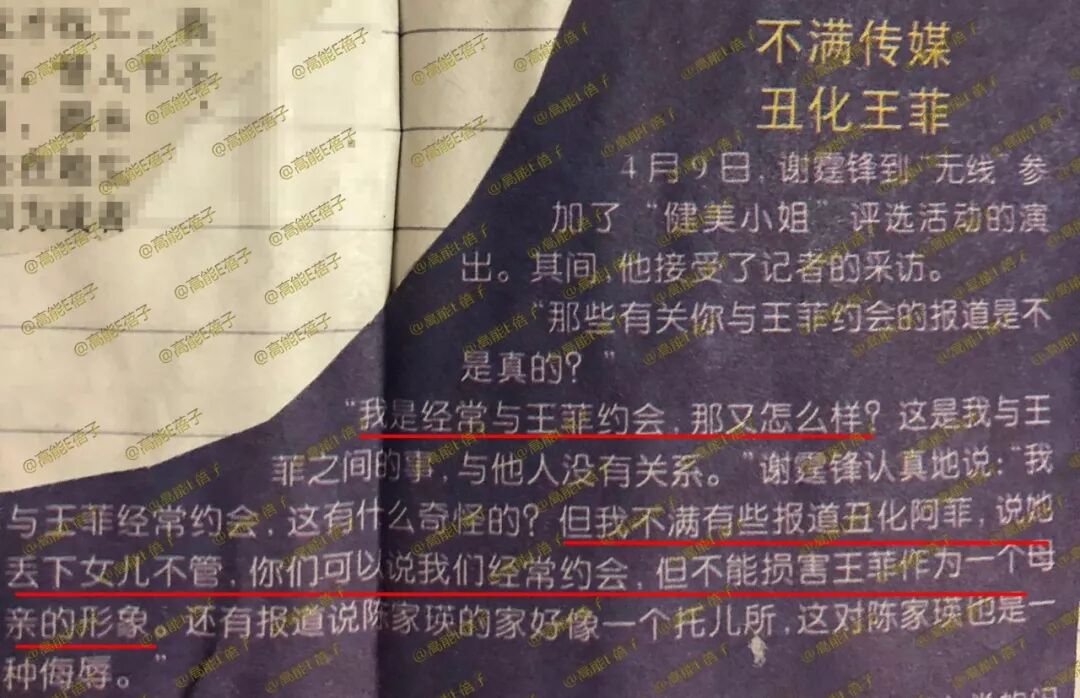 不满传媒
丑化王菲
4月9日,谢霆锋到“无线”参
加了“健美小姐”评选活动的演
出。其间,他接受了记者的采访。
“那些有关你与王菲约会的报道是不
是真的?”
“我是经常与王菲约会,那又怎么样?这是我与王
菲之间的事,与他人没有关系。”谢霆锋认真地说:“我
与王菲经常约会,这有什么奇怪的?但我不满有些报道丑化阿菲,说她
去下女儿不管,你们可以说我们经常约会,但不能损害王菲作为一个母
亲的形象。还有报道说陈家瑛的家好像一个托儿所,这对陈家瑛也是一
种侮辱。”
@高能E蓓子